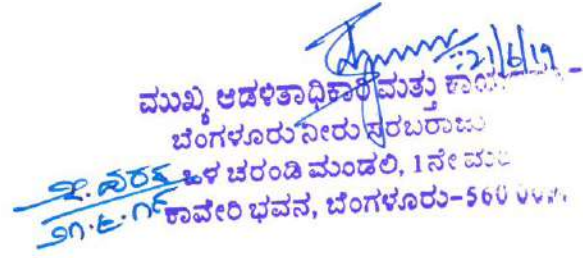 21/6/19
ಮುಖ್ಯ ಆಡಳಿತಾಧಿಕಾರಿ ಮತ್ತು
ಬೆಂಗಳೂರು ನೀರು ಸರಬರಾಜು
ಒಳ ಚರಂಡಿ ಮಂಡಲಿ, 1ನೇ
೨೧.೬.೧೯
ಕಾವೇರಿ ಭವನ, ಬೆಂಗಳೂರು-560